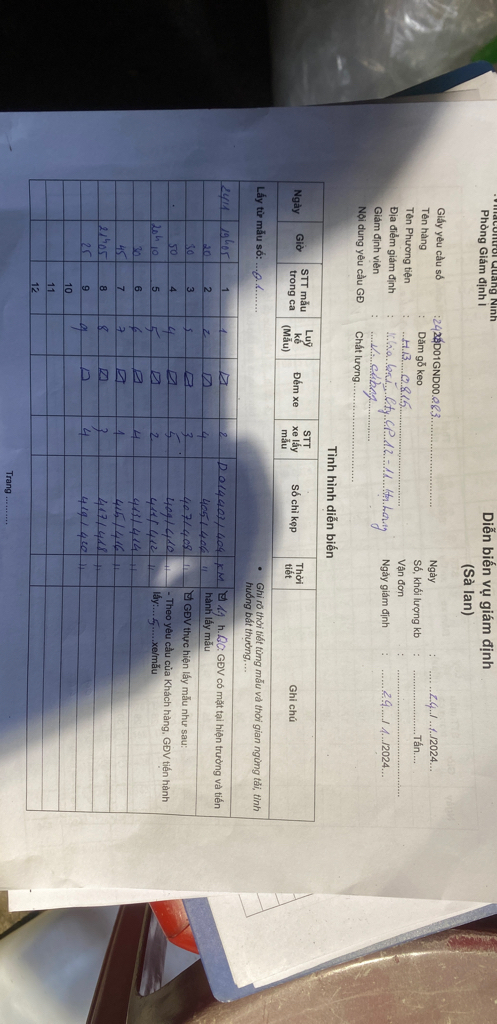 Vinacontrol Quảng Ninh
Phòng Giám định I
Diễn biến vụ giám định
(Sà lan)
Giấy yêu cầu số : 2428D01GND00.083
Ngày : 24./.1./2024...
Tên hàng : Dăm gỗ keo
Số, khối lượng kb : Tấn....
Tên Phương tiện : HB 0815
Vận đơn :
Địa điểm giám định : CP 12-11
Ngày giám định : 24../.1../2024...
Giám định viên : V.
Nội dung yêu cầu GĐ : Chất lượng
Tình hình diễn biến
Lấy từ mẫu số: ...01...
• Ghi rõ thời tiết từng mẫu và thời gian ngừng tải, tình huống bất thường,...
Ngày Giờ STT mẫu trong ca Luỹ kế (Mẫu) Đếm xe STT xe lấy mẫu Số chì kẹp Thời tiết Ghi chú
24/1 19h05 1 1 ☑ 2 403/404 KM
20 2 2 ☑ 4 405/406 11
30 3 3 ☑ 3 407/408 11
50 4 4 ☑ 5 409/410 11
20h10 5 5 ☑ 2 411/412 11
30 6 6 ☑ 4 413/414 11
45 7 7 ☑ 1 415/416 11
21h05 8 8 ☑ 3 417/418 11
25 9 9 ☑ 4 419/420 11
10
11
12
☑ 19 h 00: GĐV có mặt tại hiện trường và tiến hành lấy mẫu
☑ GĐV thực hiện lấy mẫu như sau:
- Theo yêu cầu của Khách hàng, GĐV tiến hành lấy:....5.....xe/mẫu
Trang ..........